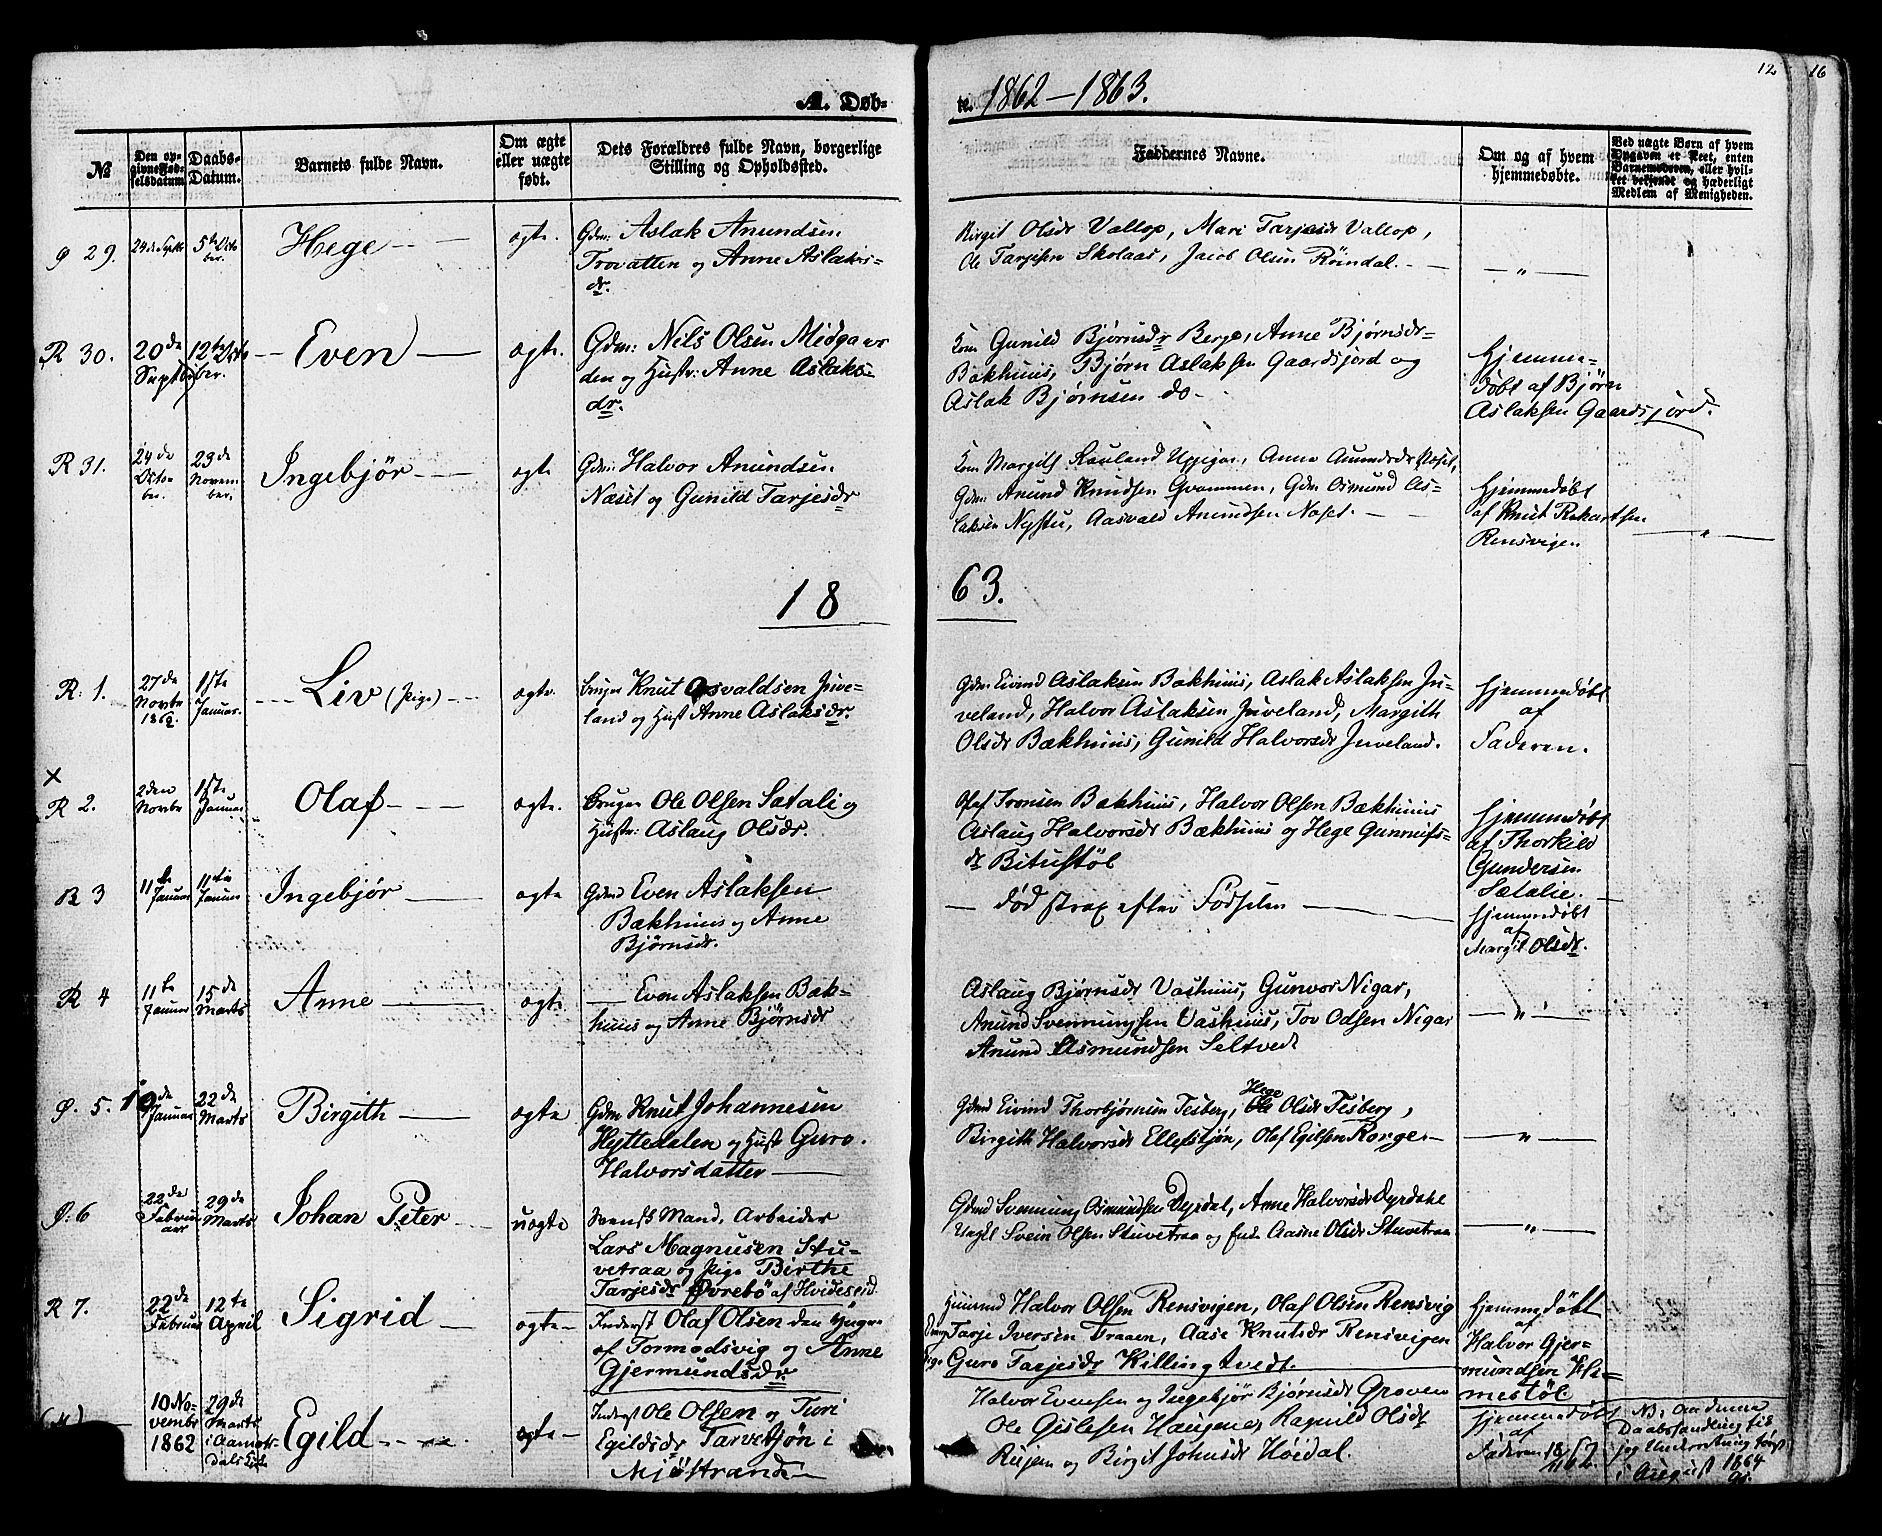 12 16
A. Døb-
te. 1862–1863.
№
Den op-
givne Fød-
selsdatum.
Daabs-
Datum.
Barnets fulde Navn.
Om ægte
eller uægte
født.
Dets Forældres fulde Navn, borgerlige
Stilling og Opholdssted.
Faddernes Navne.
Om og af hvem
hjemmedøbte.
Ved uægte Børn af hvem
Opgaven er skeet, enten
Barnemoderen, eller hvil-
ket bekjendt og hæderligt
Medlem af Menigheden.
Ø 29.
24de Septb
5te Octo
ber.
Hege
ægte.
Gdm: Aslak Anundsen
Trovatten og Anne Aslaks-
dr.
Birgit Olsdr Vallop, Mari Tarjesdr Vallop,
Ole Tarjesen Skolaas, Jacob Olsen Röindal.
"
R 30.
20de
September
12te Octo
ber.
Even
ægte.
Gdm: Nils Olsen Midgaar
den og Hustr: Anne Aslaks-
dr.
Kom Gunild Bjørnsdr Berge, Anne Bjørnsdr
Bakhuus, Bjørn Aslaksen Gaardsjord og
Aslak Bjørnsen do.
Hjemme-
døbt af Bjørn
Aslaksen Gaardsjord.
R 31.
24de
Octo-
ber.
23de
Novem
ber.
Ingebjør
ægte
Gdm: Halvor Anundsen
Næset og Gunild Tarjesdr
Kom Margith Rauland Uppigar, Anne Anundsdr Næset,
Gdm: Anund Knudsen Qvammen, Gdm Osmund As-
laksen Nystu, Aasvald Anundsen Næset.
Hjemmedøbt
af Knut Rikartsen
Rensvigen
"
18 63.
R: 1.
27de
Novbr
1862.
1ste
Januar.
Liv (Pige)
ægte.
Bruger Knut Osvaldsen Juve-
land og Hust Anne Aslaksdr.
Gdm Eivind Aslaksen Bækhuus, Aslak Aslaksen Ju-
veland, Halvor Aslaksen Juveland, Margith
Olsdr Bækhuus, Gunild Halvorsdr Juveland.
Hjemmedøbt
af
Faderen.
x
R 2.
2den
Novbr
1ste
Januar
Olaf
ægte.
Bruger Ole Olsen Sætali og
Hustr: Aslaug Olsdr.
Olaf Tronsen Bakhuus, Halvor Olsen Bækhuus
Aslaug Halvorsdr Bækhuus og Hege Gunnufs-
dr Bitustöl
Hjemmedøbt
af Thorkild
Gundersen
Sætalie.
R 3
11te
Januar
11te
Januar
Ingebjør
ægte
Gdmd Even Aslaksen
Bækhuus og Anne
Bjørnsdr.
død strax efter Fødselen
Hjemmedøbt
af
Margit Olsdr.
R 4
11te
Januar
15de
Marts
Anne
ægte
Even Aslaksen Bak-
huus og Anne Bjørnsdr
Aslaug Bjørnsdr Vashuus, Gunvor Nigar,
Anund Svenningsen Vashuus, Tov Odsen Nigar
Anund Osmundsen Seltved
"
Ø. 5.
19de
Januar
22de
Marts
Birgith
ægte
Gdm Knut Johannesen
Hyttedalen og Hust Guro
Halvorsdatter
Gdmd Eivind Thorbjørnsen Tesberg, Hege Olsdr Tesberg,
Birgith Halvorsdr Ellefstjøn, Olaf Egilsen Rorge
"
Ø: 6
22de
Februar
29de
Marts
Johan Peter
uægte
Svensk Mand, Arbeider
Lars Magnusen Stu-
vetraa og Pige Birthe
Tarjesdr Øvrebö af Hvideseid.
Gdmd Svenning Osmundsen Dyrdal, Anne Halvorsdr Dyrdal
Ungkl Svein Olsen Stuvetraa og Aasne Olsdr Stuvetraa
"
R 7.
22de
Februar
12te
April
Sigrid
ægte
Inderst Olaf Olsen den yngre
af Tormodsvig og Anne
Gjermundsdr
Halvor Olsen Rensvigen, Olaf Olsen Rensvig
Tarje Iversen Traaen, Aase Knutsdr Rensvigen
Pige Guro Tarjesdr Killingtvedt.
Hjemmedøbt
af
Halvor Gjer-
mundsen
10 No-
vembr
1862
29de
Marts
i Aamots-
dals Kirke
Egild
ægte
Inderst Ole Olsen og Turi
Egildsdr Tarvetjøn i
Mjöstrand
Halvor Evensen og Ingebjør Bjørnsdr Groven
Ole Gislesen Haugene, Ragnild Olsdr
og Birgit Johnsdr Høidal.
Hjemmedøbt
af
Faderen
NB. Anderne
Daabshandling tid
og Underretning først
i August 1864